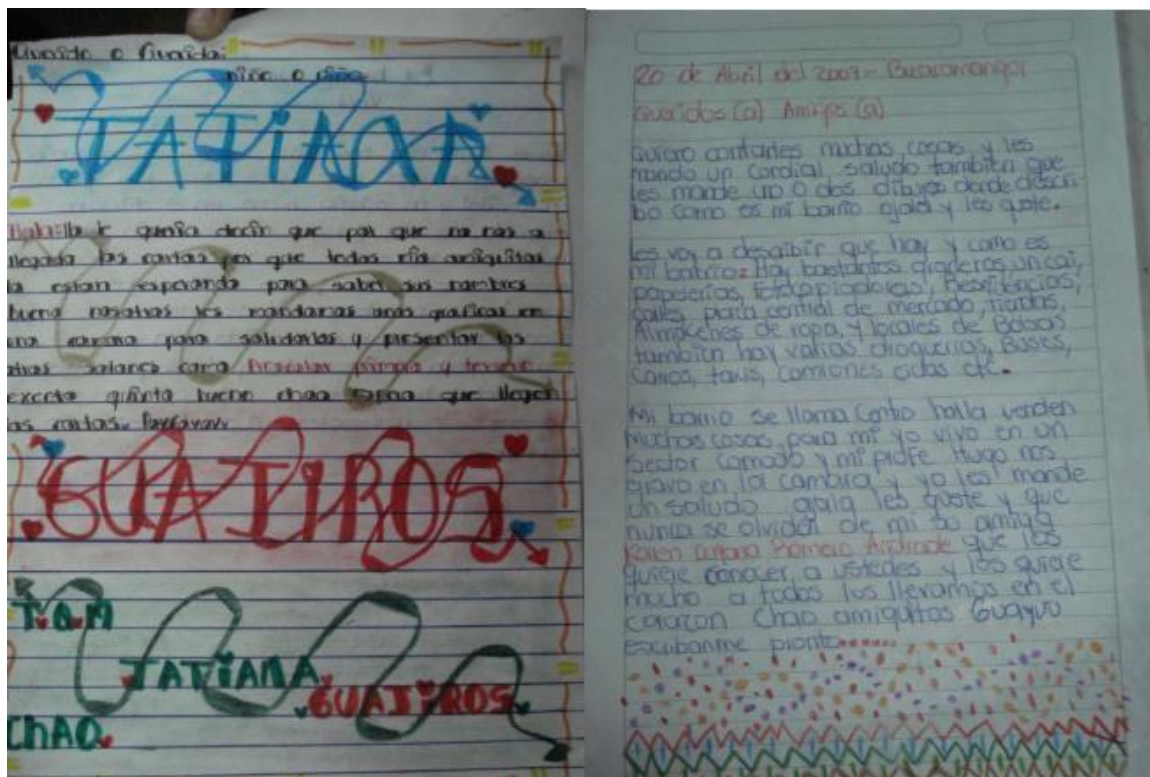 niño o niña
TATIANA
Hola: Yo le quería decir que por que no nos a
llegado las cartas por que todas mis amiguitas
la estan esperando para saber sus nombres
bueno nosotras les mandamos unas graficas en
una para saludarlos y presentar los
otros salones cara Preescolar primero y tercero
excepto quinto bueno chao espero que llegen
as cartas.
GUAJIROS
T.Q.M
TATIANA
GUAJIROS
CHAO
20 de Abril del 2007 - Bucaramanga
Queridos (a) Amigos (a)
Quiero contarles muchas cosas y les
mando un Cordial saludo tambien que
les mande uno o dos dibujos donde descri
bo como es mi barrio ojala y les guste.
les voy a describir que hay y como es
mi barrio: Hay bastantes graderos, un cai,
papelerias, fotocopiadoras, Residencias,
calles, para central de mercado, tiendas,
Almacenes de ropa, y locales de Bolsos
tambien hay varias droguerias, Buses,
Carros, taxis, camiones ciclas etc.
Mi barrio se llama Centro halla venden
muchas cosas, para mi yo vivo en un
Sector Comodo y mi profe Hugo nos
gravo en la camara y yo les mande
un saludo ojala les guste y que
nunca se olviden de mi su amiga
Karen Romero Andrade que los
quiere conocer a ustedes y los quiere
mucho a todos los llevamos en el
corazon Chao amiguitos Guayuu
escribanme pronto